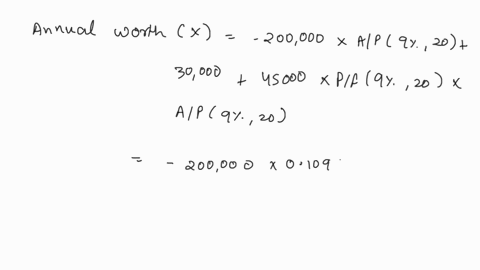 Annual worth (X) = - 200,000 x A/P (9%, 20) +
30,000 + 45000 x P/f (9%, 20) x
A/P (9%, 20)
= - 200,000 x 0.109